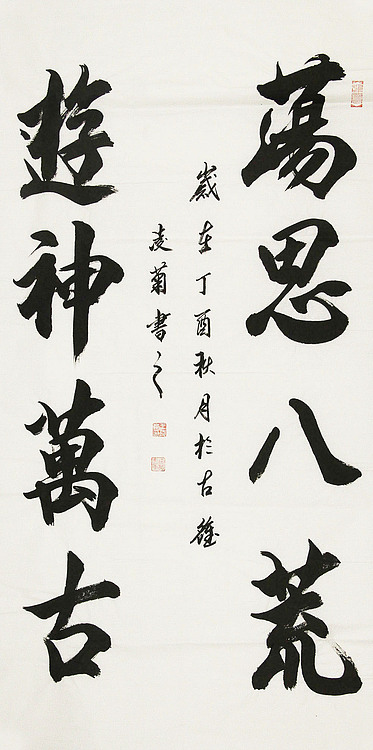 蕩思八荒
遊神萬古
歲在丁酉秋月於古
凌菊書之